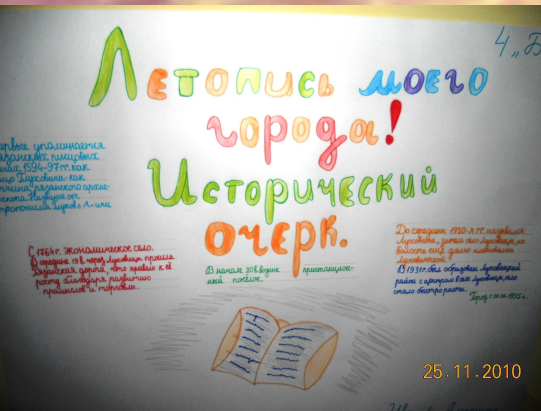 4 „Б
Летопись моего
города!
Исторический
очерк.
упоминается
писцовых
1594-97гг. как
Глуховичи-как
рязанского архи-
С 1764г. экономическое село.
В середине 19 в. через Луховицы прошла
дорога, что привело к её
росту благодаря развитию
промыслов и торговли.
В начале 20 в. возник пристанцион-
ный поселок.
До середины 1920-х гг. назывался
Луховичи, затем село Луховицы, но
волость ещё долго
В 1931г. был образован Луховицкий
район с центром в селе Луховицы,
стало быстро расти.
Город с
25.11.2010